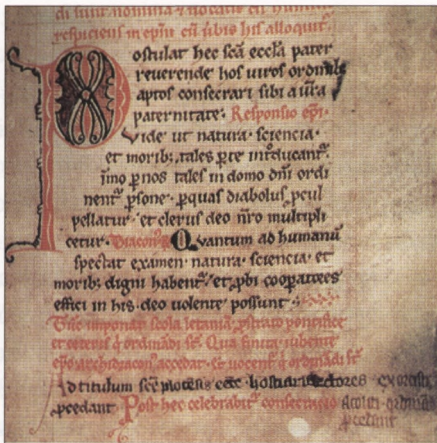 di sunt nomina & notatis cū humi
respiciens in epm̄ cū sibis his alloquit᷑.
Postulat hec scā eccƚa pater
reuerende hos uiros ordinib;
aptos consecrari sibi a ūra
paternitate. Responsio epi.
Vide ut natura. sciencia.
et morib;, tales p te introducant᷑.
īmo p nos tales in domo dn̄i ordi
nent᷑ psone. p quas diabolus pcul
pellatur. et clerus deo nr̄o multipli
cetur. Diacon᷒ Quantum ad humanū
spectat examen. natura. sciencia. et
morib; digni habent᷑. et pbi coopatores
effici in his. deo uolente possunt.
Tūc imponat scola letaniā. pstrato pontifice
et ceteris q̇ ordinādi st̄. Qua finita iubente
epo. archidiacon᷒ accedat. et uocent᷑ q̇ ordinādi st̄
Ad titulum scē eccƚe hostiarii lectores exorcistę
pcedant. Post hec celebrabit᷑ consecratio acoliti ordinādi
pcedant